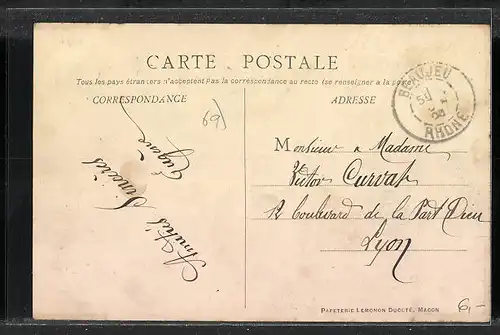 CARTE POSTALE
Tous les pays étrangers n'acceptent pas la correspondance au recto (se renseigner à la poste)
CORRESPONDANCE
ADRESSE
BEAUJEU
RHONE
69)
Amitiés
Sincères
Eugène
Monsieur & Madame
Victor Curvat
12 boulevard de la Part Dieu
Lyon
PAPETERIE LEMONON DUCOTÉ, MACON
6,-